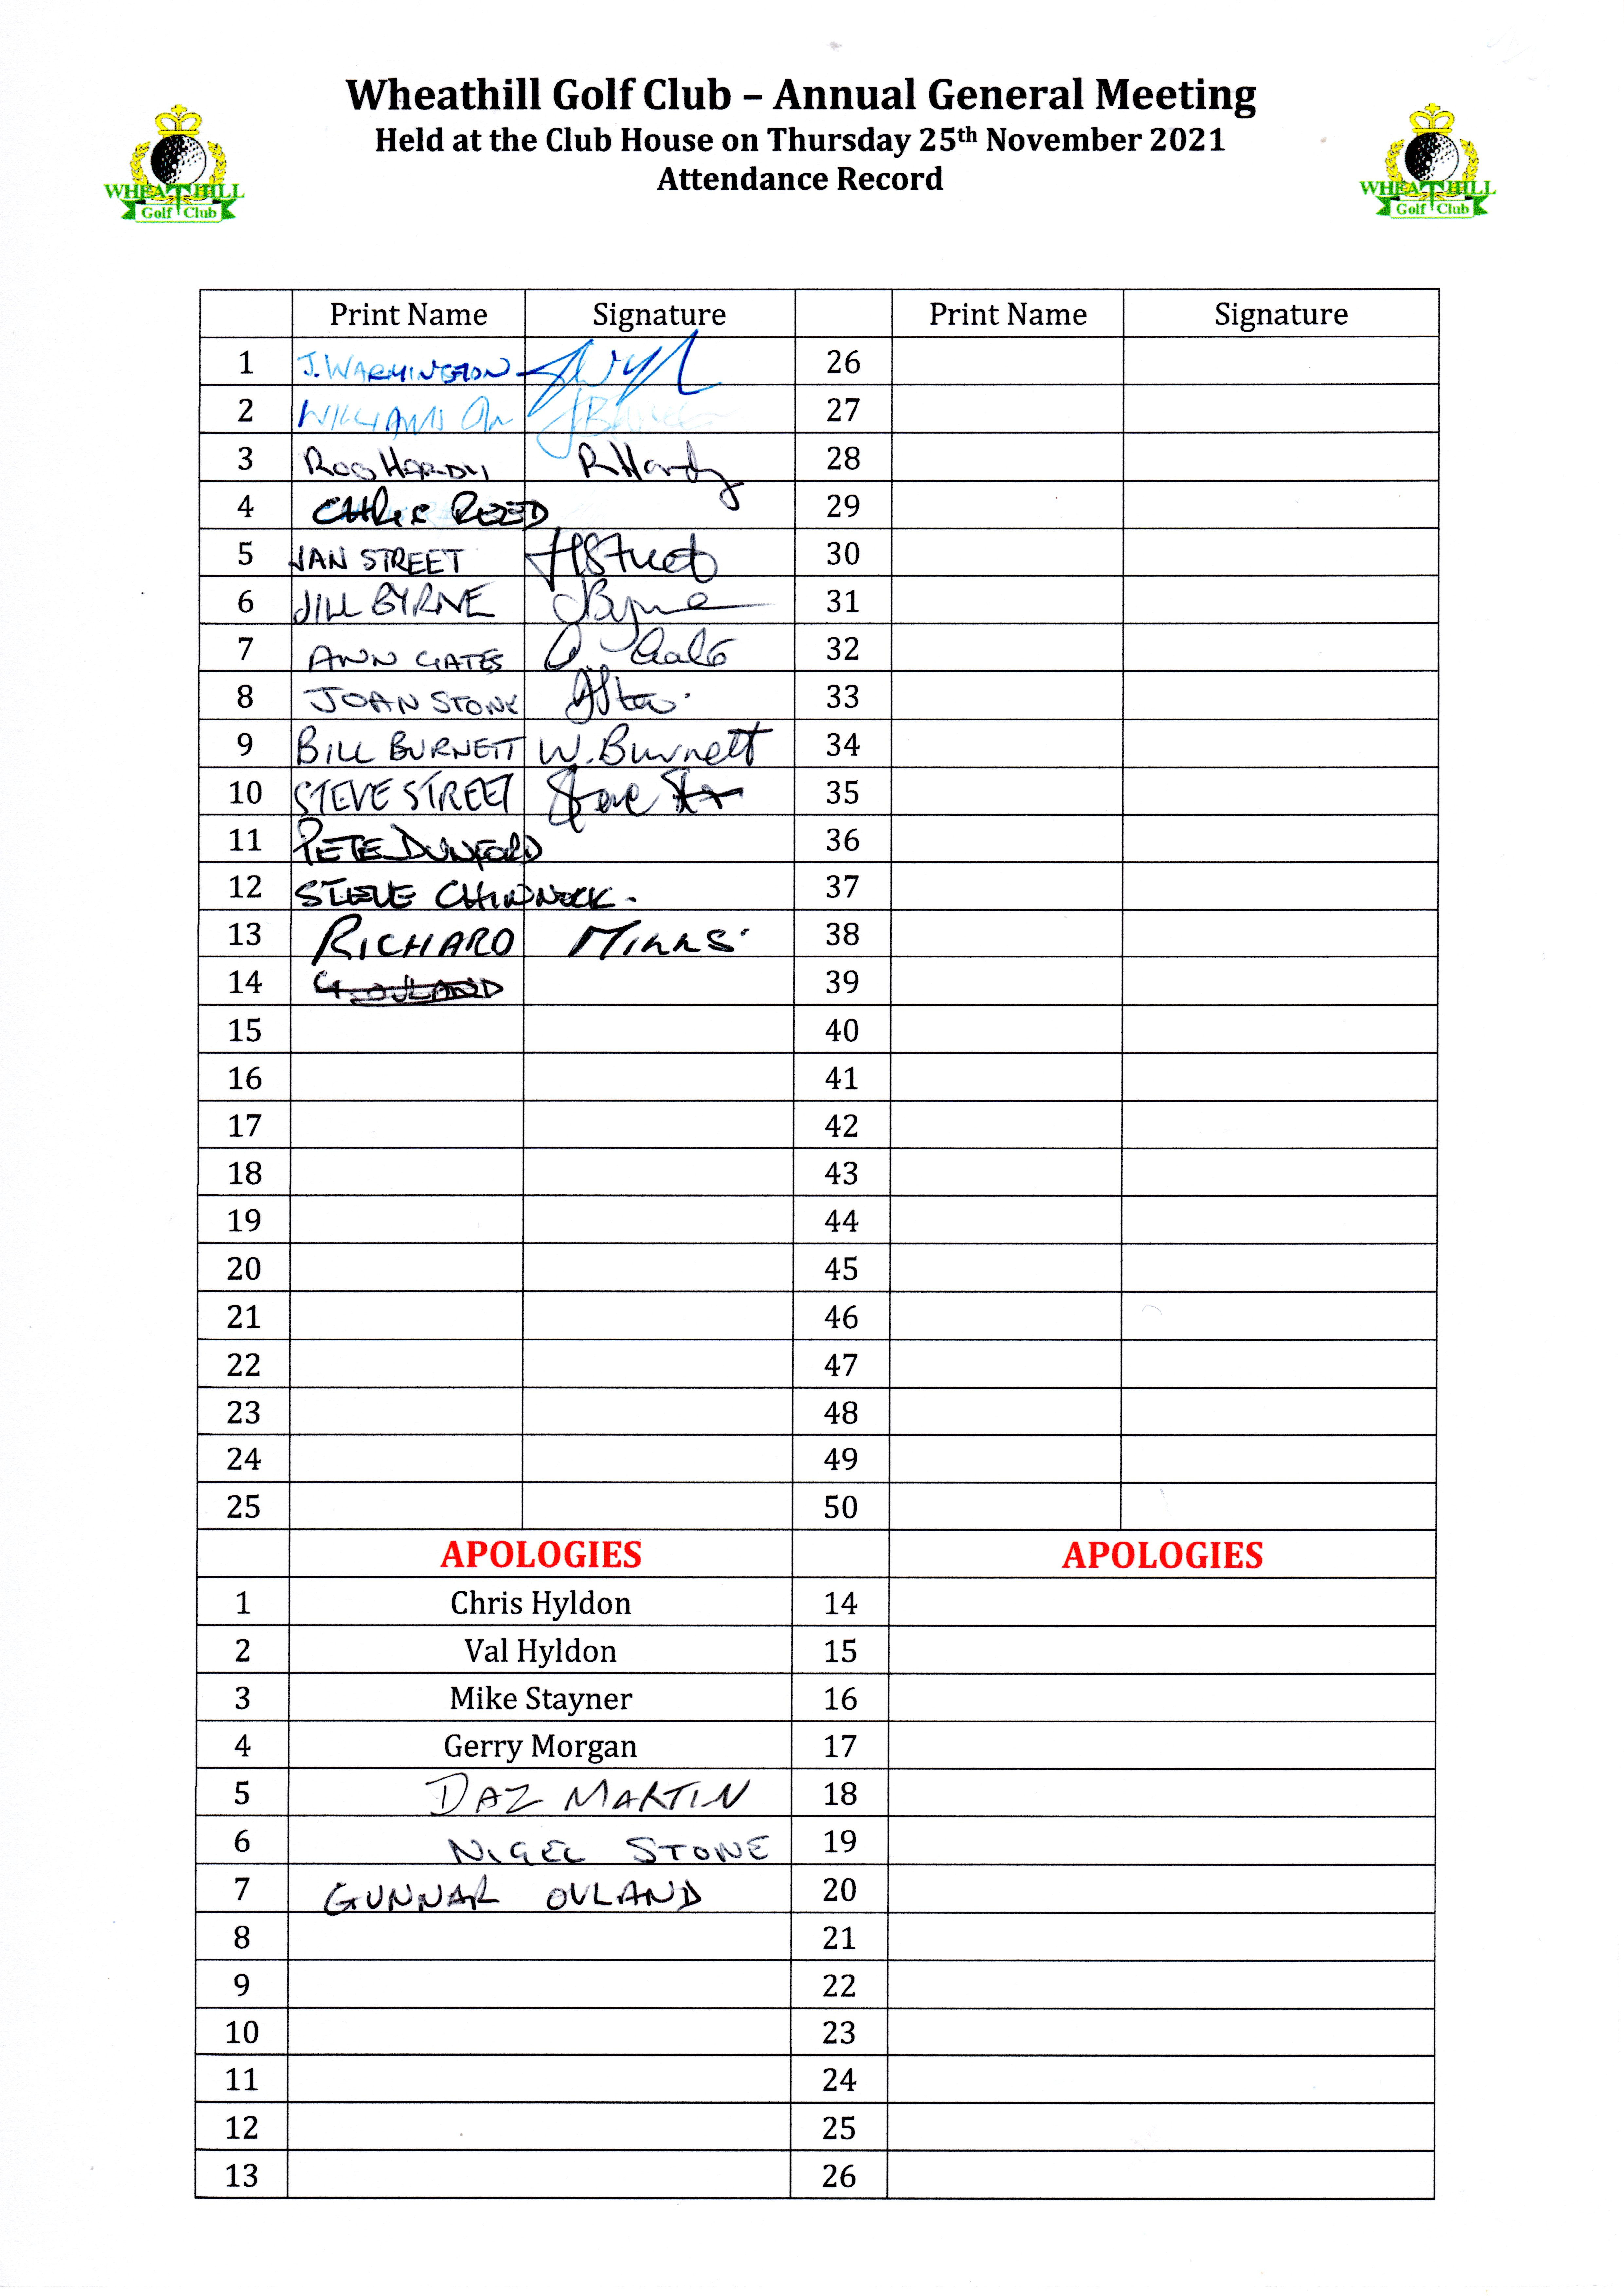 Wheathill Golf Club – Annual General Meeting
Held at the Club House on Thursday 25th November 2021
Attendance Record
WHEATHILL
Golf Club
WHEATHILL
Golf Club
Print Name Signature Print Name Signature
1 J. WARMINGTON 26
2 WILLIAMS 27
3 ROG HARDY R Hardy 28
4 CHRIS REED 29
5 JAN STREET JStreet 30
6 JILL BYRNE JByrne 31
7 ANN GATES 32
8 JOAN STONE 33
9 BILL BURNETT W. Burnett 34
10 STEVE STREET Steve 35
11 PETE DUNFORD 36
12 STEVE CHINNOCK. 37
13 RICHARD MILLS. 38
14 G. OVLAND 39
15 40
16 41
17 42
18 43
19 44
20 45
21 46
22 47
23 48
24 49
25 50
APOLOGIES APOLOGIES
1 Chris Hyldon 14
2 Val Hyldon 15
3 Mike Stayner 16
4 Gerry Morgan 17
5 DAZ MARTIN 18
6 NIGEL STONE 19
7 GUNNAR OVLAND 20
8 21
9 22
10 23
11 24
12 25
13 26